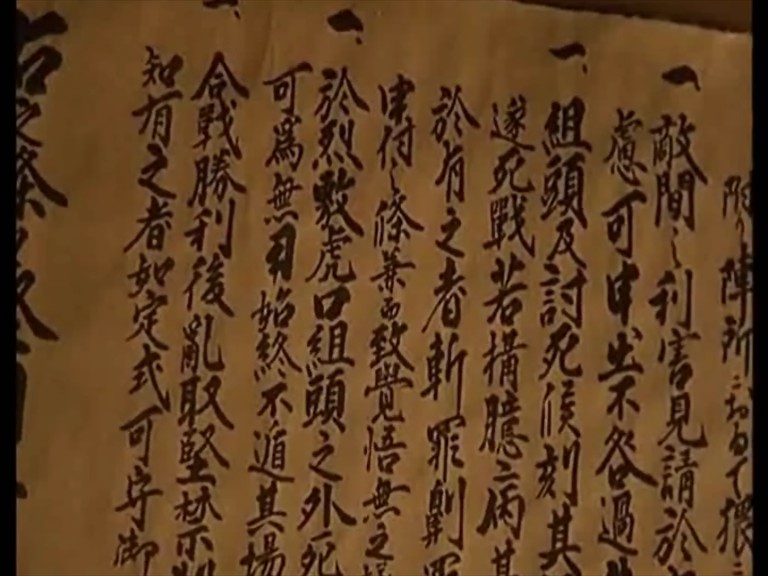 附り陣所ニおゐて猥ニ
一 敵間之利害見請於
慮可申出不咎過
一、組頭及討死候刻其
遂死戰若搆臆ニ而其
於有之者斬罪劓罪
申付之條兼而致覺悟無之
一、於烈敷虎口組頭之外死
可爲無用始終不遁其場
一、合戰勝利後亂取堅禁不
知有之者如定式可守御
右之條